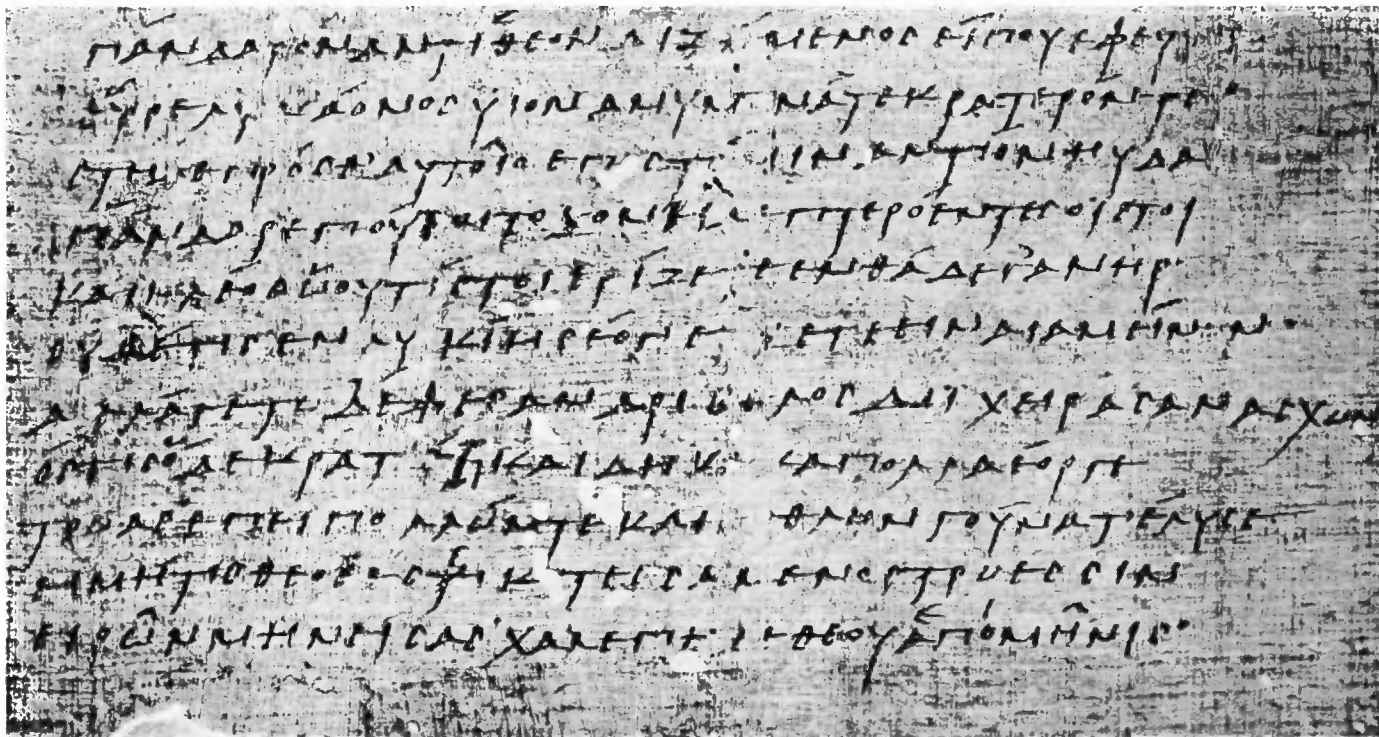 ΠΑΝΔΑΡΟΝ ΑΝΤΙΘΕΟΝ ΔΙΖΗΜΕΝΟΣ ΕΙ ΠΟΥ ΕΦΕΥ
ΕΥΡΕ ΛΥΚΑΟΝΟΣ ΥΙΟΝ ΑΜΥΜΟΝΑ ΤΕ ΚΡΑΤΕΡΟΝ ΤΕ
ΣΤΗ ΔΕ ΠΡΟΣΘ ΑΥΤΟΙΟ ΕΠΟΣ Τ ΜΙΝ ΑΝΤΙΟΝ ΗΥΔΑ
ΠΑΝΔΑΡΕ ΠΟΥ ΤΟΙ ΤΟΞΟΝ ΙΔΕ ΠΤΕΡΟΕΝΤΕΣ ΟΙΣΤΟΙ
ΚΑΙ ΚΛΕΟΣ ΩΙ ΟΥ ΤΙΣ ΤΟΙ ΕΡΙΖΕΤΑΙ ΕΝΘΑΔΕ Γ ΑΝΗΡ
ΟΥΔΕ ΤΙΣ ΕΝ ΛΥΚΙΗΙ ΣΕΟ Γ Ε ΕΤΕ ΕΙΝΑΙ ΑΜΕΙΝΩΝ
ΑΛΛ ΑΓΕ ΤΩΙΔ ΕΦΕΣ ΑΝΔΡΙ ΒΕΛΟΣ ΔΙΙ ΧΕΙΡΑΣ ΑΝΑΣΧΩΝ
ΟΣ ΤΙΣ ΟΔΕ ΚΡΑΤΕΕΙ ΚΑΙ ΔΗ ΚΑΚΑ ΠΟΛΛΑ ΕΟΡΓΕ
ΤΡΩΑΣ ΕΠΕΙ ΠΟΛΛΩΝ ΤΕ ΚΑΙ ΕΣΘΛΩΝ ΓΟΥΝΑΤ ΕΛΥΣΕ
ΕΙ ΜΗ ΤΙΣ ΘΕΟΣ ΕΣΤΙ ΚΟΤΕΣΣΑΜΕΝΟΣ ΤΡΩΕΣΣΙΝ
ΕΙΡΩΝ ΜΗΝΕΙΣΑΣ ΧΑΛΕΠΗ ΔΕ ΘΕΟΥ ΕΠΙ ΜΗΝΙΣ